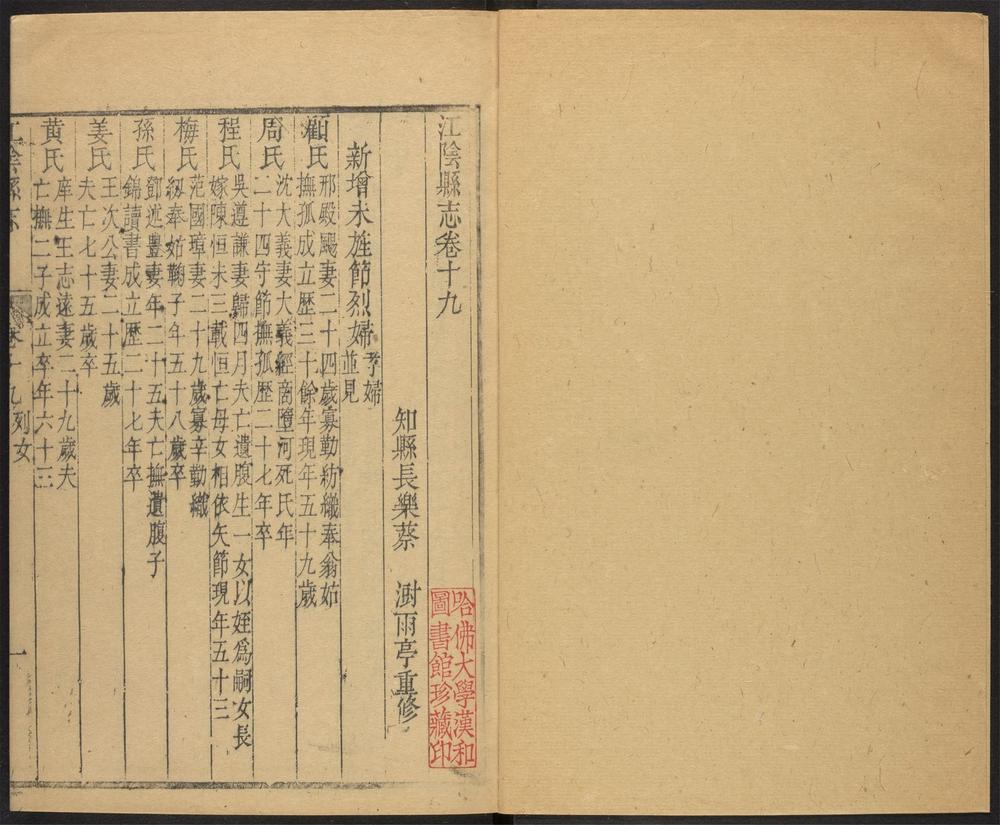 江陰縣志卷十九
知縣長樂蔡 澍雨亭重修
新增未旌節烈婦孝婦
並見
顧氏邢殿颺妻二十四歲寡勤紡織奉翁姑
撫孤成立歷三十餘年現年五十九歲
周氏沈大義妻大義經商墮河死氏年
二十四守節撫孤歷二十七年卒
程氏吳遵謙妻歸四月夫亡遺腹生一女以姪爲嗣女長
嫁陳恒未三載恒亡母女相依矢節現年五十三
梅氏范國璋妻二十九歲寡辛勤織
紉奉姑鞠子年五十八歲卒
孫氏鄧述豊妻年二十五夫亡撫遺腹子
錦讀書成立歷二十七年卒
姜氏王次公妻二十五歲
夫亡七十五歲卒
黄氏庠生王志遠妻二十九歲夫
亡撫二子成立卒年六十三
江陰縣志
卷十九列女
一
哈佛大學漢和
圖書館珍藏印